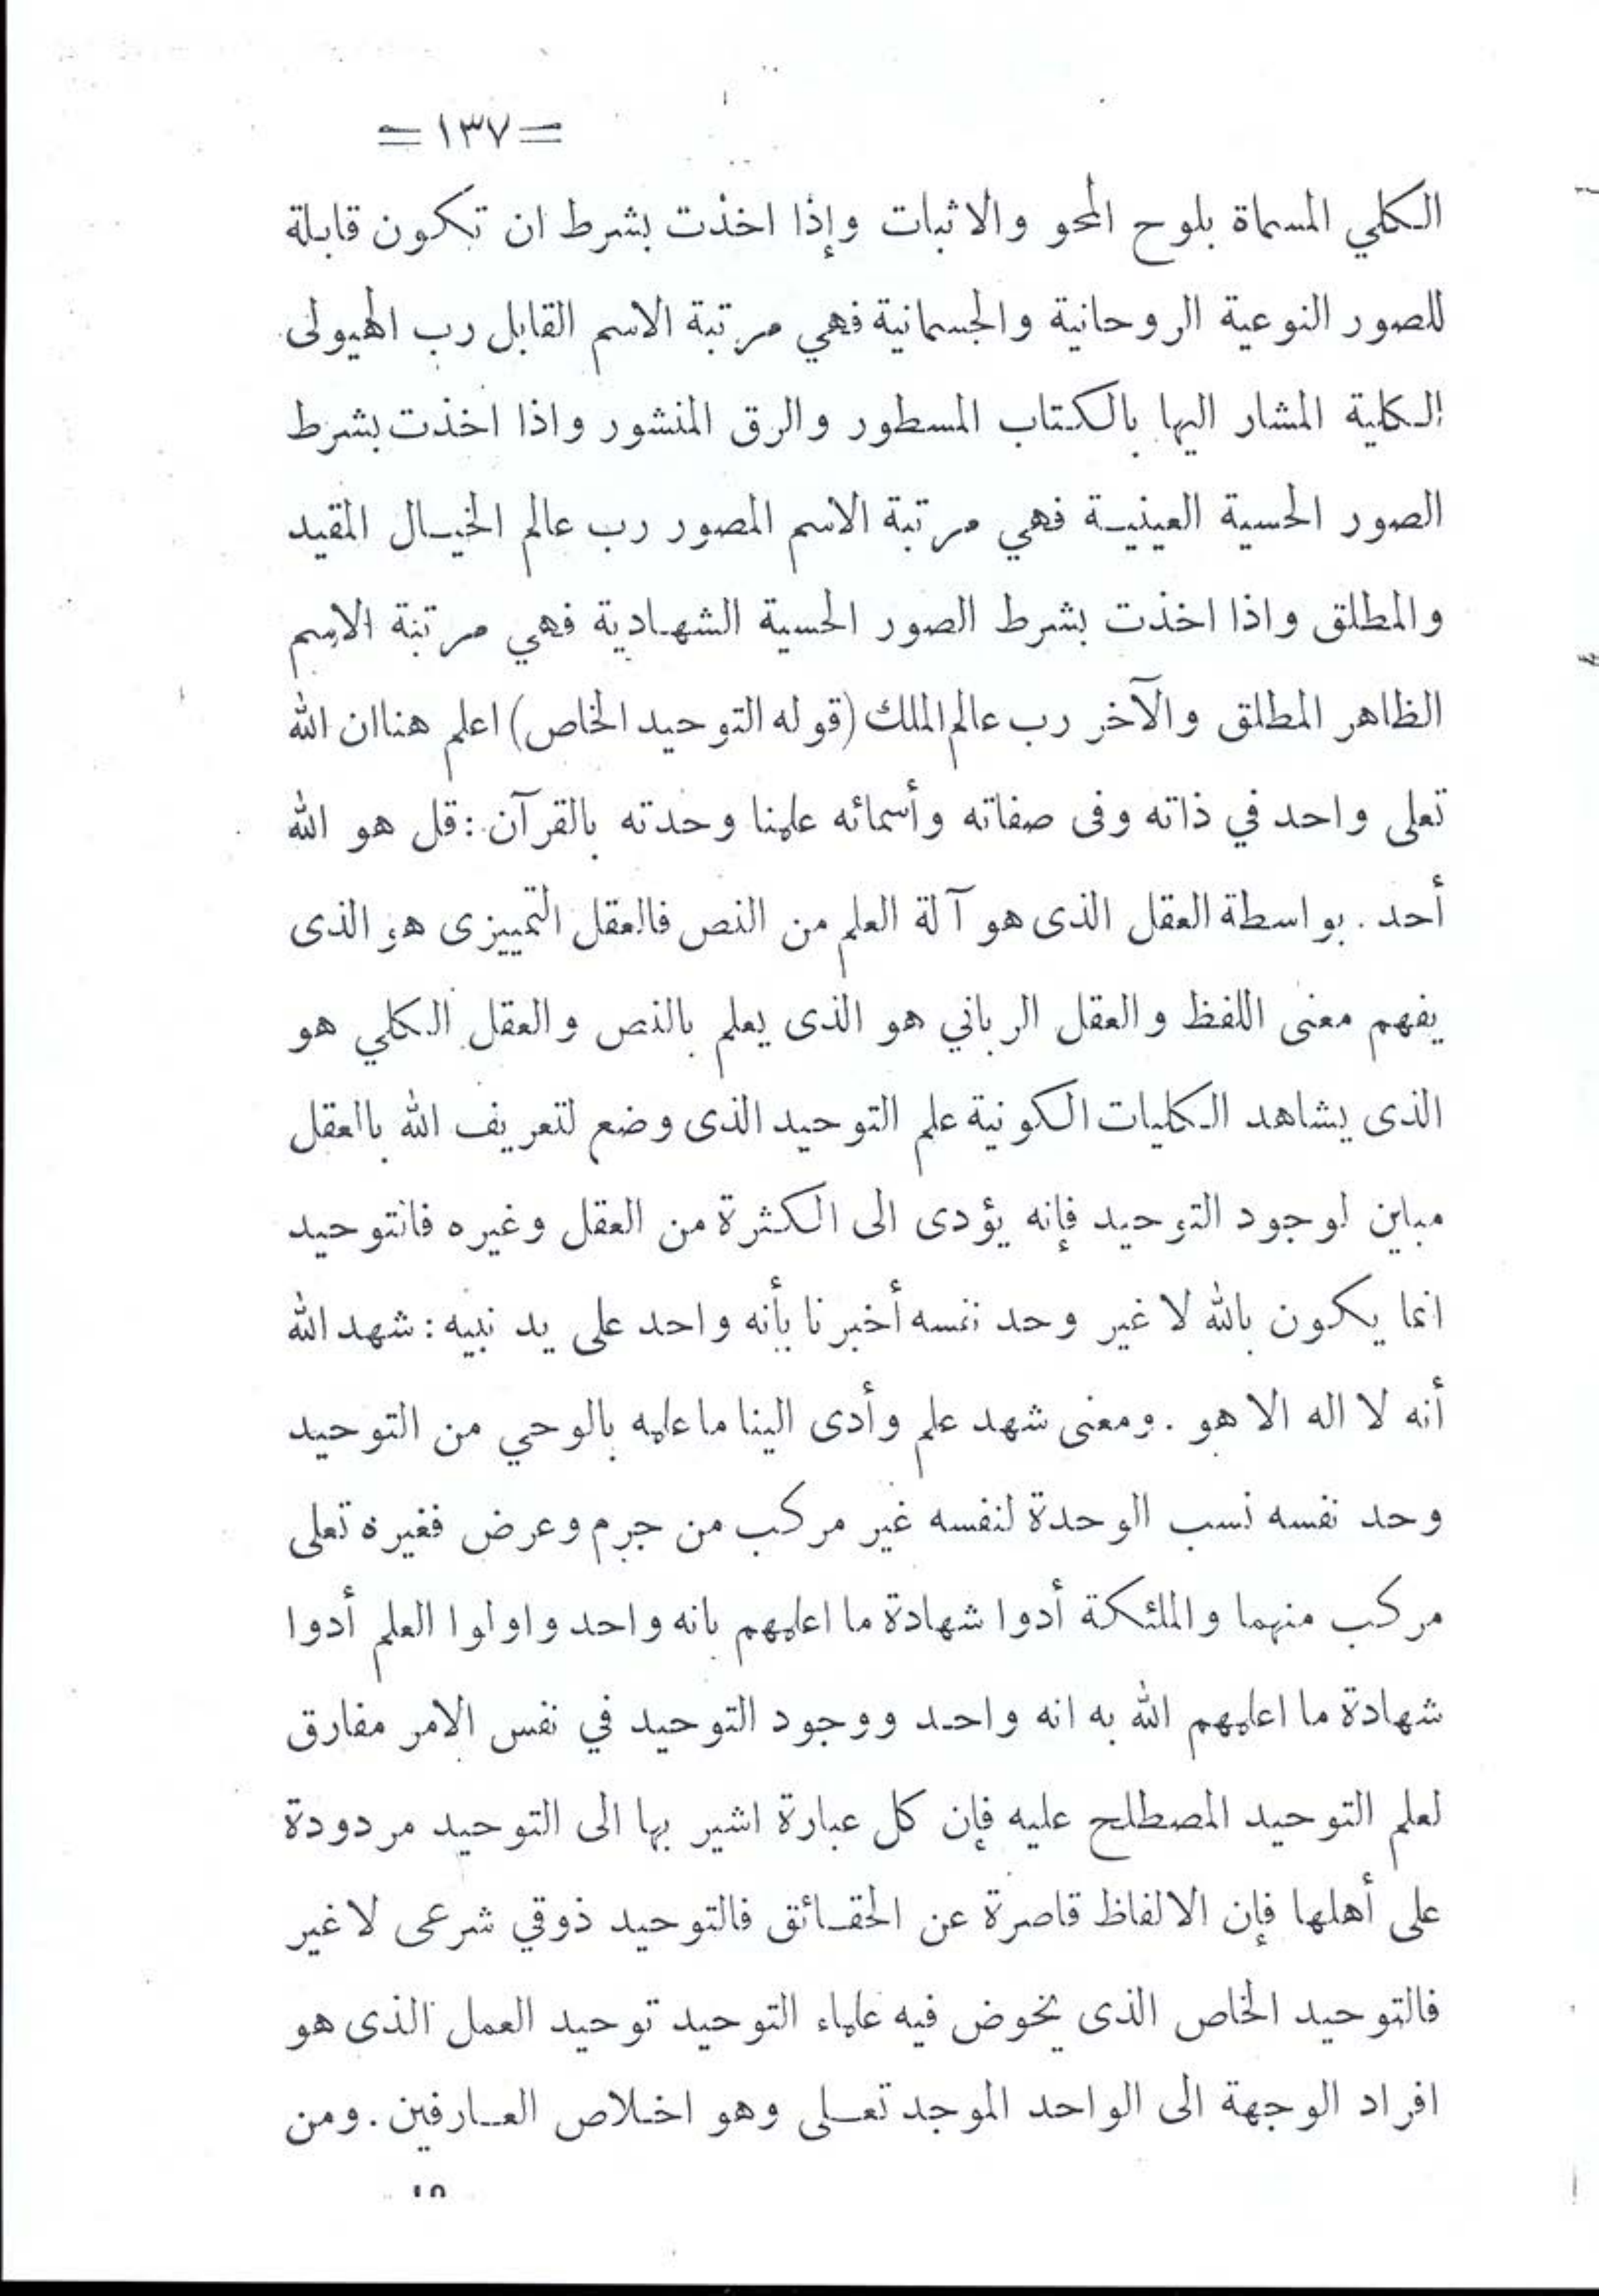 = ١٣٧ =
الكلي المسماة بلوح المحو والاثبات وإذا اخذت بشرط ان تكون قابلة
للصور النوعية الروحانية والجسمانية فهي مرتبة الاسم القابل رب الهيولى
الكلية المشار اليها بالكتاب المسطور والرق المنشور واذا اخذت بشرط
الصور الحسية العينية فهي مرتبة الاسم المصور رب عالم الخيال المقيد
والمطلق واذا اخذت بشرط الصور الحسية الشهادية فهي مرتبة الاسم
الظاهر المطلق والآخر رب عالم الملك (قوله التوحيد الخاص) اعلم هنا ان الله
تعلى واحد في ذاته وفى صفاته وأسمائه علمنا وحدته بالقرآن : قل هو الله
أحد . بواسطة العقل الذى هو آلة العلم من النص فالعقل التمييزى هو الذى
يفهم معنى اللفظ والعقل الرباني هو الذى يعلم بالنص والعقل الكلي هو
الذى يشاهد الكليات الكونية علم التوحيد الذى وضع لتعريف الله بالعقل
مباين لوجود التوحيد فإنه يؤدى الى الكثرة من العقل وغيره فالتوحيد
انما يكون بالله لا غير وحد نفسه أخبرنا بأنه واحد على يد نبيه : شهد الله
أنه لا اله الا هو . ومعنى شهد علم وأدى الينا ما علمه بالوحي من التوحيد
وحد نفسه نسب الوحدة لنفسه غير مركب من جرم وعرض فغيره تعلى
مركب منهما والملئكة أدوا شهادة ما اعلمهم بانه واحد واولوا العلم أدوا
شهادة ما اعلمهم الله به انه واحد ووجود التوحيد في نفس الامر مفارق
لعلم التوحيد المصطلح عليه فإن كل عبارة اشير بها الى التوحيد مردودة
على أهلها فإن الالفاظ قاصرة عن الحقائق فالتوحيد ذوقي شرعى لا غير
فالتوحيد الخاص الذى يخوض فيه علماء التوحيد توحيد العمل الذى هو
افراد الوجهة الى الواحد الموجد تعلى وهو اخلاص العارفين . ومن